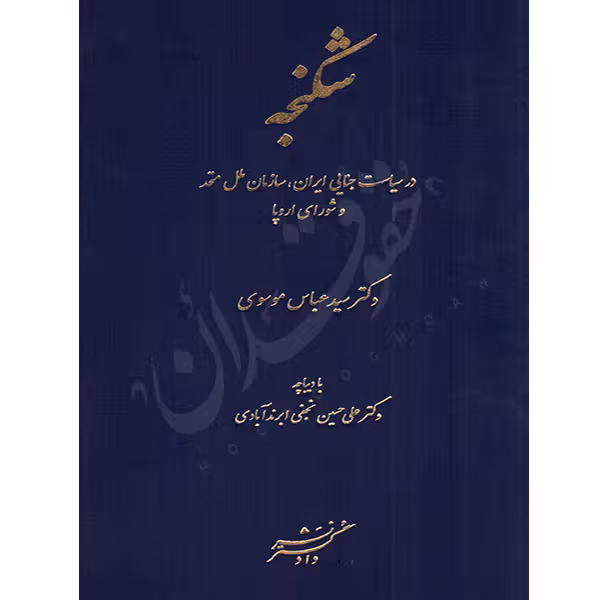 شکنجه
در سیاست جنایی ایران، سازمان ملل متحد
و شورای اروپا
دکتر سید عباس موسوی
با دیباچه
دکتر علی حسین نجفی ابرندآبادی
نشر
دادگستر
حقوقدان